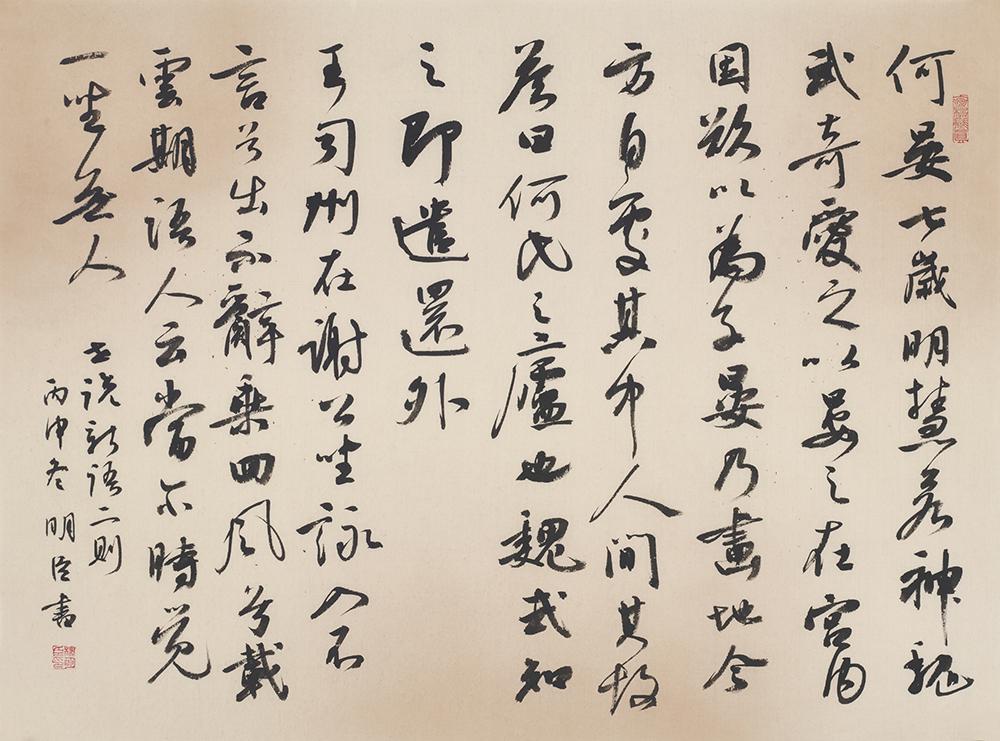 何晏七歲明慧若神魏
武奇愛之以晏之在宮內
因欲以為子晏乃畫地令
方自處其中人間其故
答曰何氏之廬也魏武知
之即遣還外
王司州在謝公坐詠入不
言兮出不辭乘回風兮載
雲期語人云當尔時覓
一坐無人
世說新語二則
丙申冬明臣書